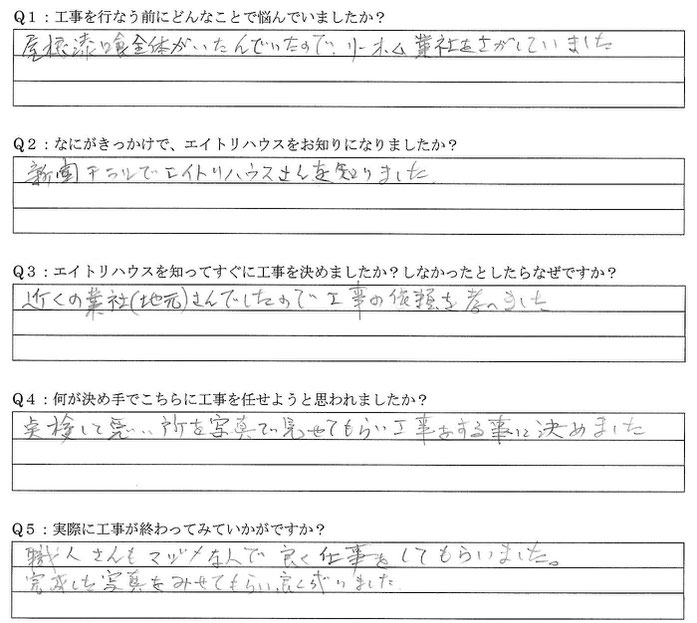 Q1：工事を行なう前にどんなことで悩んでいましたか？
屋根漆喰全体がいたんでいたので、リーホム業社をさがしていました
Q2：なにがきっかけで、エイトリハウスをお知りになりましたか？
新聞チラシでエイトリハウスさんを知りました。
Q3：エイトリハウスを知ってすぐに工事を決めましたか？しなかったとしたらなぜですか？
近くの業社(地元)さんでしたので工事の依頼を考へました
Q4：何が決め手でこちらに工事を任せようと思われましたか？
点検して悪い所を写真で見せてもらい工事をする事に決めました
Q5：実際に工事が終わってみていかがですか？
職人さんもマジメな人で良く仕事をしてもらいました。
完成した写真をみせてもらい、良く成りました